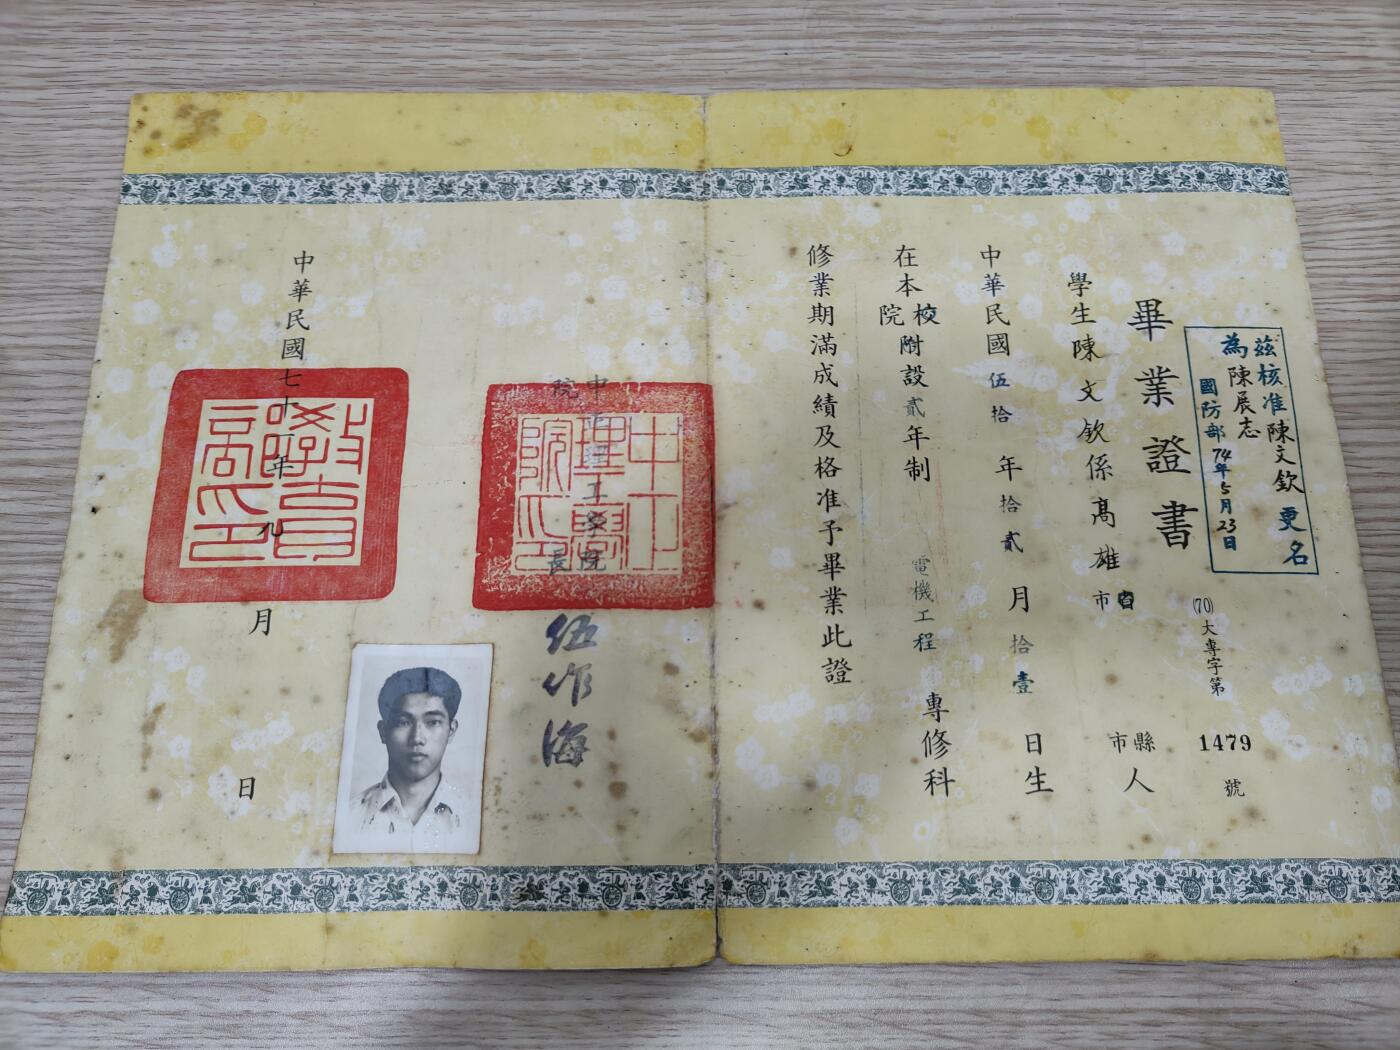 茲核准陳文欽更名
為陳展志
國防部74年5月23日
(70)大專字第1479號
畢業證書
學生陳文欽係高雄市省市縣人
中華民國伍拾年拾貳月拾壹日生
在本校院附設貳年制電機工程專修科
修業期滿成績及格准予畢業此證
中正理工學院院長伍作海
中正理工學院印
教育部印
中華民國七十一年九月日